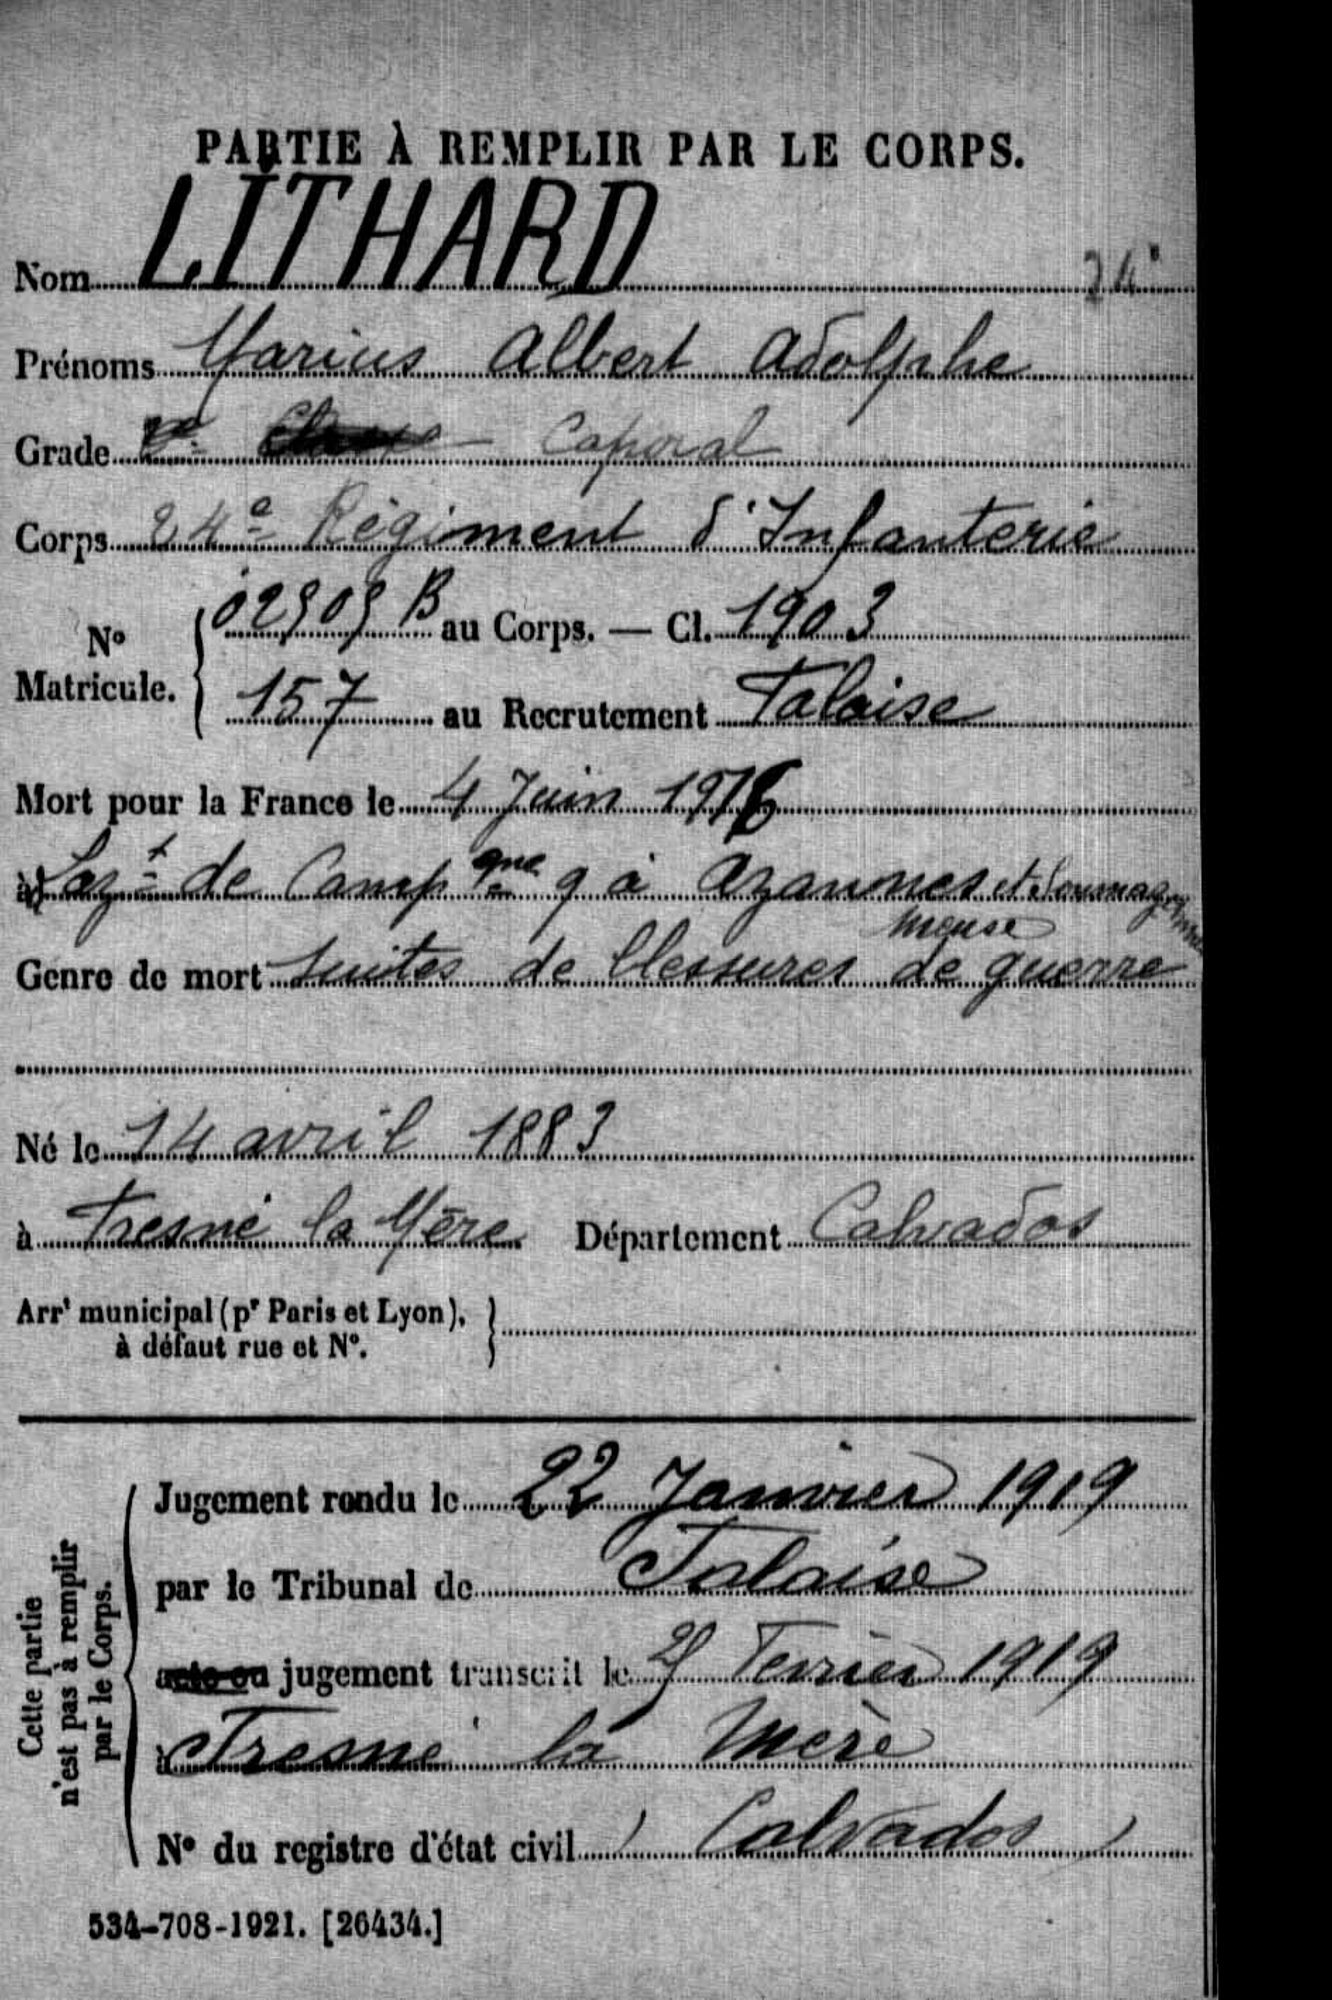 PARTIE À REMPLIR PAR LE CORPS.
Nom LITHARD
24e
Prénoms Marius Albert Adolphe
Grade 2e Classe Caporal
Corps 24e Régiment d'Infanterie
No Matricule. 02909 B au Corps. — Cl. 1903
157 au Recrutement Falaise
Mort pour la France le 4 Juin 1916
à Lazt de Campgne 9 à Azannes et Soumazannes
Meuse
Genre de mort suites de blessures de guerre
Né le 14 avril 1883
à Fresné la Mère Département Calvados
Arrt municipal (pr Paris et Lyon),
à défaut rue et No.
Cette partie
n'est pas à remplir
par le Corps.
Jugement rendu le 22 Janvier 1919
par le Tribunal de Falaise
acte ou jugement transcrit le Fevrier 1919
à Fresné la Mère
No du registre d'état civil ( Calvados )
534-708-1921. [26434.]